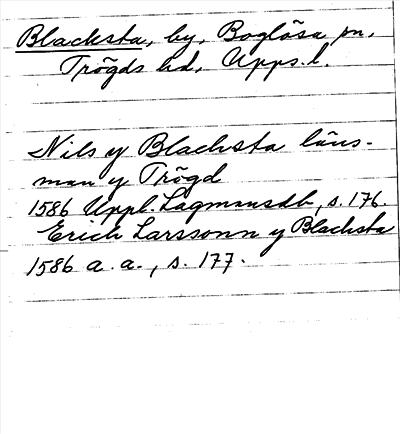 Blacksta, by, Boglösa sn,
Trögds hd, Upps. l.
Nils y Blachsta läns-
man y Trögd
1586 Uppl. Lagmansdb, s. 176.
Erich Larssonn y Blachsta
1586 a. a., s. 177.